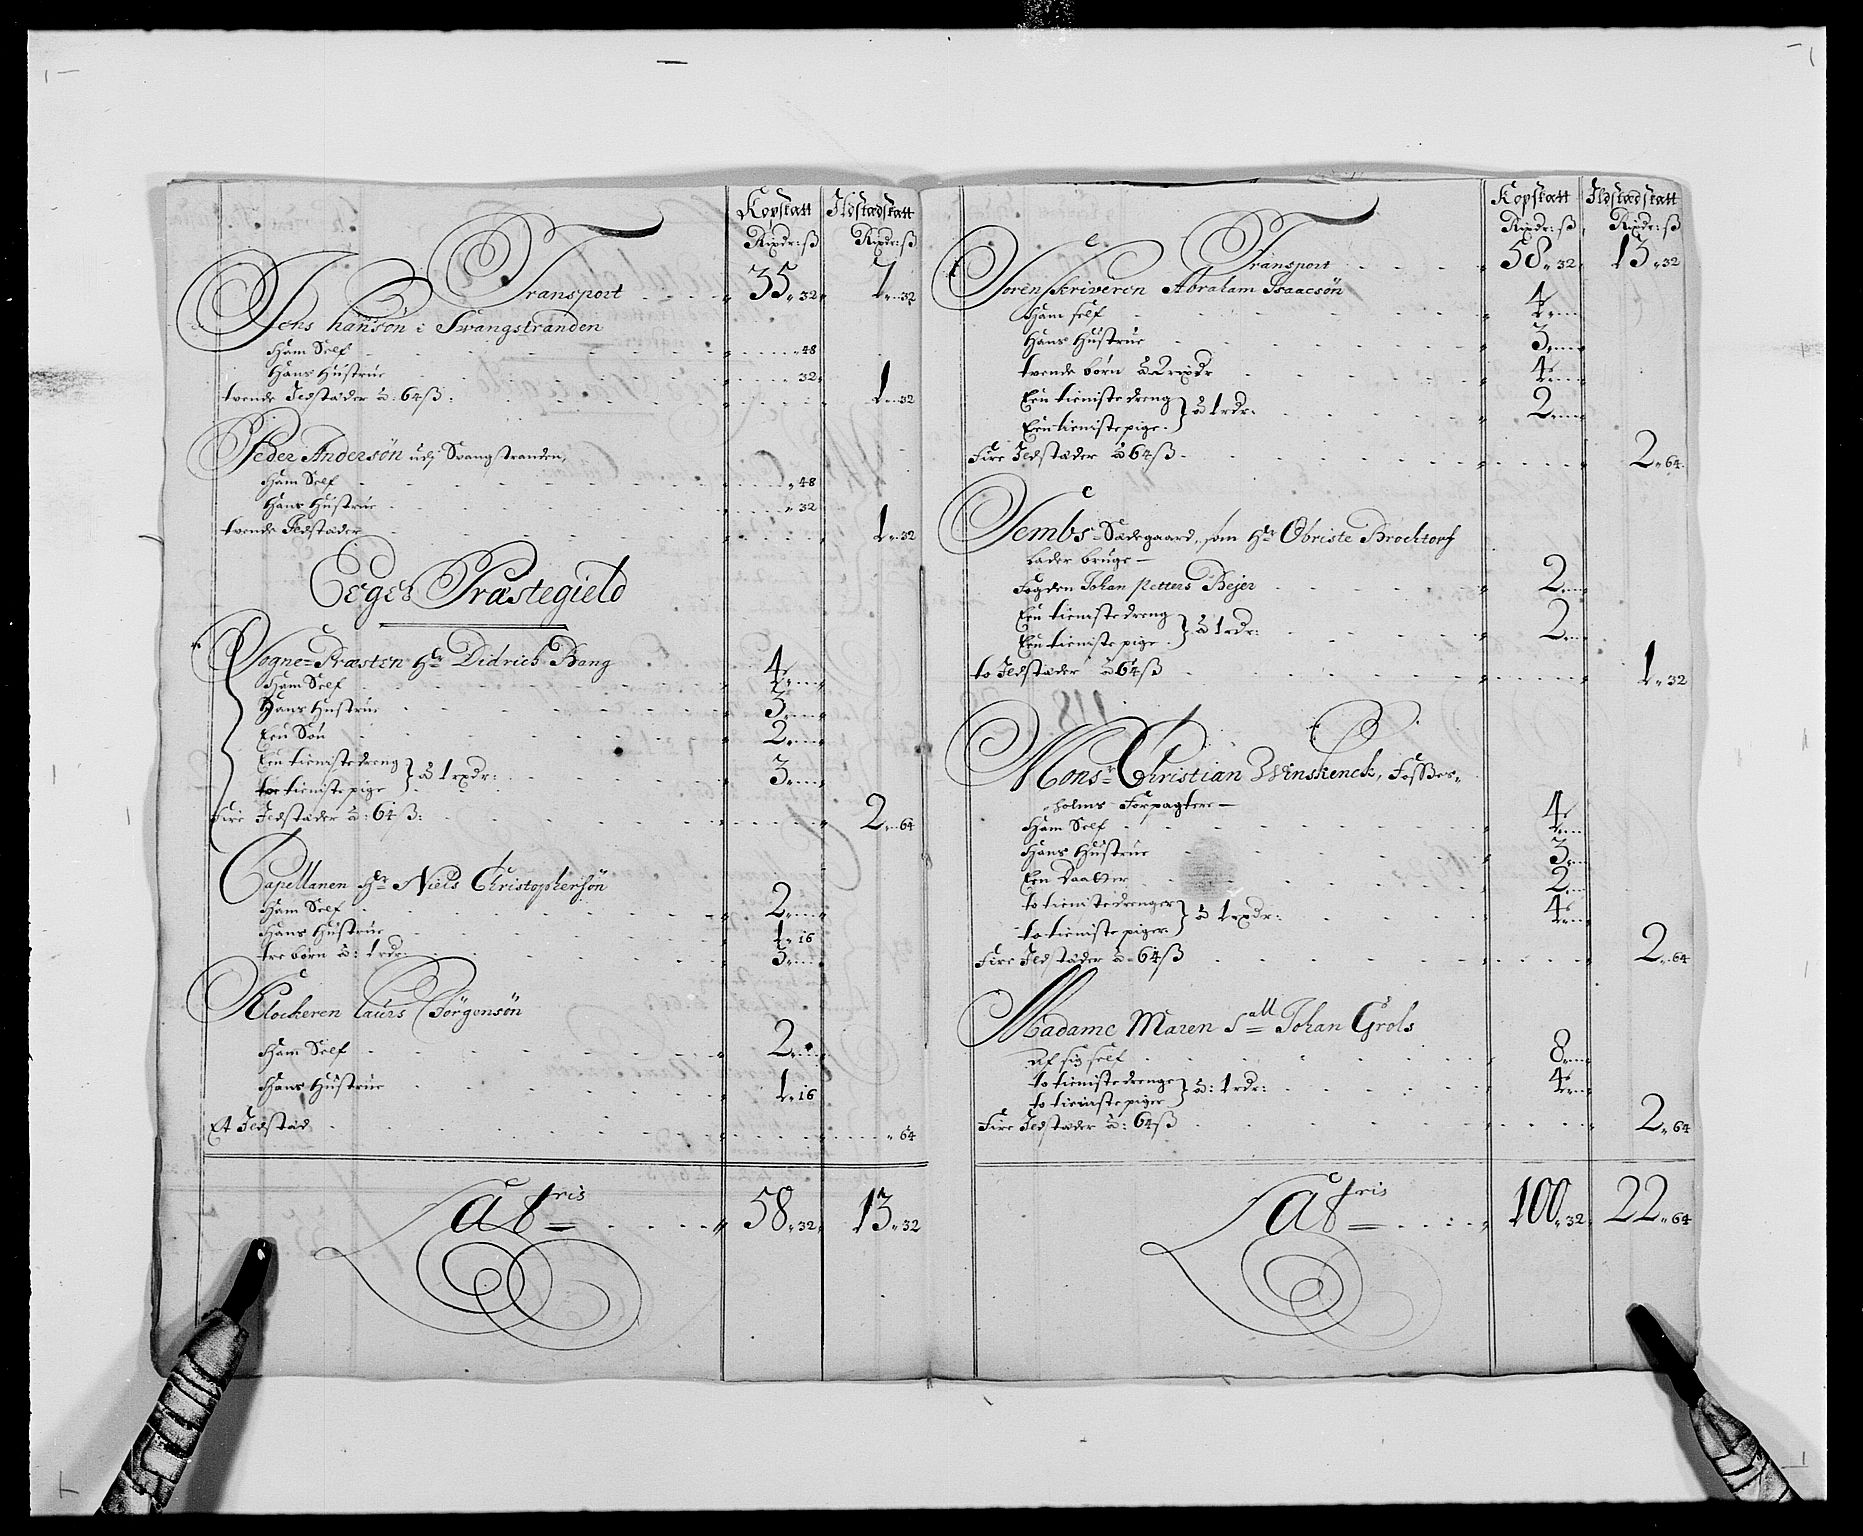 Kopskatt Ildstædskatt
Rixdr: ß Rixdr: ß
Transport 35 „ 32 7 „ 32
Jens hansøn i Svangstranden
Ham Self „ 48
Hans Hustrue „ 32
tvende Ildstæder à: 64 ß: 1 „ 32
Peder Andersøn udj Svangstranden,
Ham Self „ 48
Hans Hustrue „ 32
tvende Ildstæder 1 „ 32
Eeger Præstegield
Sogne-Præsten Hr Didrich Bang
Ham Self 4
Hans Hustrue 3
Een Søn 2
Een tienistedreng
toe tienistepige } à 1 rxdr: 3
Fire Ildstæder à: 64 ß: 2 „ 64
Capellanen Hr Niels Christophersøn
Ham Self 2
Hans Hustrue 1 „ 16
tre børn à: 1 rdr: 3
Klockeren Laurs Jörgensøn
Ham Self 2
Hans Hustrue 1 „ 16
Et Ildstæd „ 64
Latris 58 „ 32 13 „ 32
Kopskatt Ildstædskatt
Rixdr: ß Rixdr: ß
Transport 58 „ 32 13 „ 32
Sorenskriveren Abraham Isaacsøn
Ham self 4
Hans Hustrue 3
tvende børn à 2 rixdr 4
Een tienistedreng
Een tienistepige } à 1 rdr: 2
Fire Ildstæder à 64 ß 2 „ 64
Sembs-Sædegaard, som Hr Obriste Brocktorf
Lader bruge
Fogden Johan petters Bejer 2
Een tienistedreng
Een tieniste pige } à 1 rdr: 2
to Ildstæder à 64 ß 1 „ 32
Monsr Christian Winskenck, Fosses-
holms Forpagtere
Ham Self 4
Hans Hustrue 3
Een Daatter 2
to tienistedrenger
to tieniste piger } à 1 rxdr: 4
Fire Ildstæder à 64 ß 2 „ 64
Madame Maren Sall Johan Grols
Af sig self 8
to tienistedrenge
to tienistepiger } à: 1 rdr: 4
Fire Ildstæder à: 64 ß 2 „ 64
Latris 100 „ 32 22 „ 64